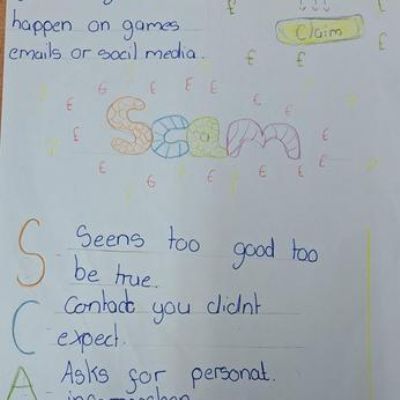 happen on games
emails or socil media.
Claim
Scam
S Seens too good too
be true.
C Contact you didnt
expect.
A Asks for personat.